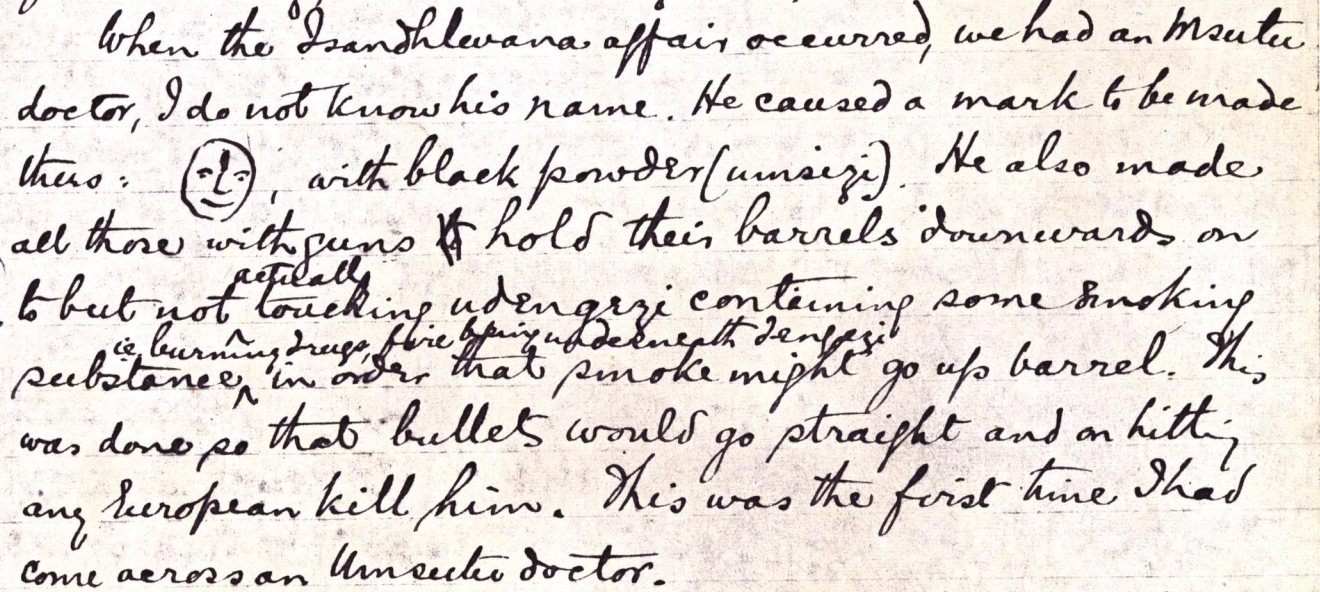 When the Isandhlwana affair occurred, we had an Msutu
doctor, I do not know his name. He caused a mark to be made
thus: , with black powder (umsizi). He also made
all those with guns hold their barrels downwards on
actually
to but not touching udengezi containing some smoking
ie, burning drugs, fire being underneath dengezi
substance, in order that smoke might go up barrel. This
was done so that bullets would go straight and on hitting
any European kill him. This was the first time I had
come across an Umsutu doctor.